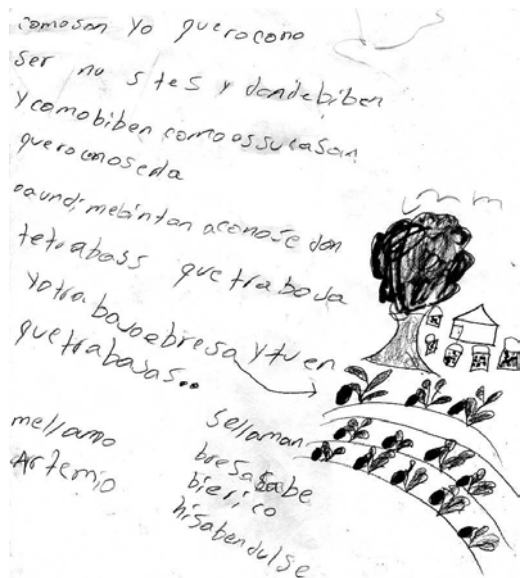 como son Yo querocono
ser nu s tes y dondebiben
Y como biben como es su casa
queroconoserla
tetrabass que traboja
Yotrabojoebresa y tu en
que trabajas..
mellamo
Artemio
sellaman
bresa sabe
bierico
hisabendulse